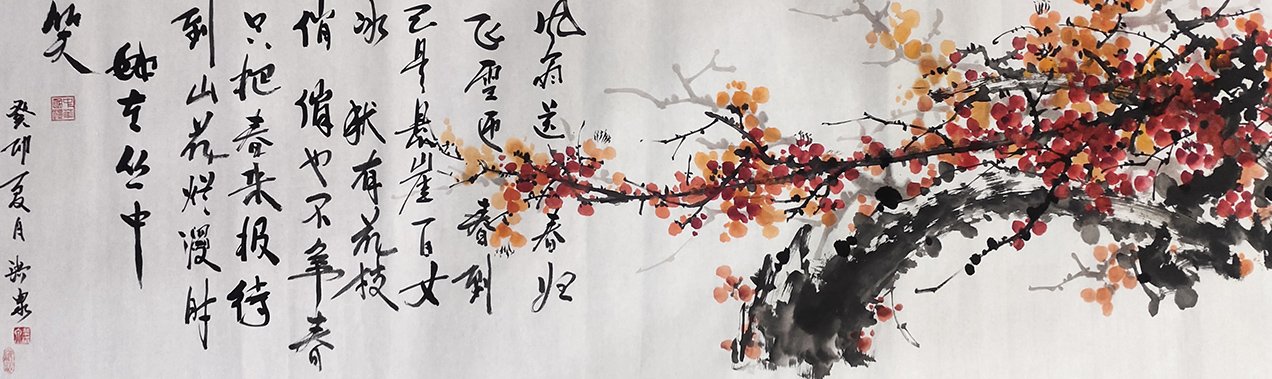 风雨送春归
飞雪迎春到
已是悬崖百丈
冰犹有花枝
俏俏也不争春
只把春来报待
到山花烂漫时
她在丛中
笑
癸卯夏月 泉